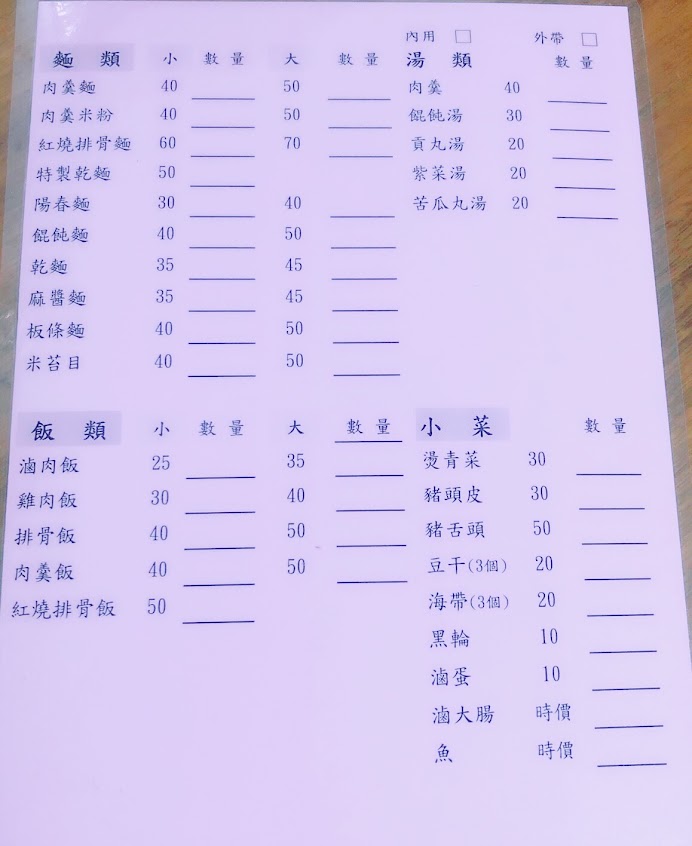 內用 □ 外帶 □
麵類 小 數量 大 數量
肉羹麵 40 50
肉羹米粉 40 50
紅燒排骨麵 60 70
特製乾麵 50
陽春麵 30 40
餛飩麵 40 50
乾麵 35 45
麻醬麵 35 45
板條麵 40 50
米苔目 40 50
湯類 數量
肉羹 40
餛飩湯 30
貢丸湯 20
紫菜湯 20
苦瓜丸湯 20
飯類 小 數量 大 數量
滷肉飯 25 35
雞肉飯 30 40
排骨飯 40 50
肉羹飯 40 50
紅燒排骨飯 50
小菜 數量
燙青菜 30
豬頭皮 30
豬舌頭 50
豆干(3個) 20
海帶(3個) 20
黑輪 10
滷蛋 10
滷大腸 時價
魚 時價